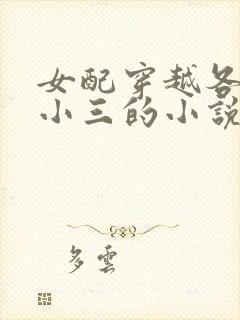 女配穿越各
小三的小說
多雲